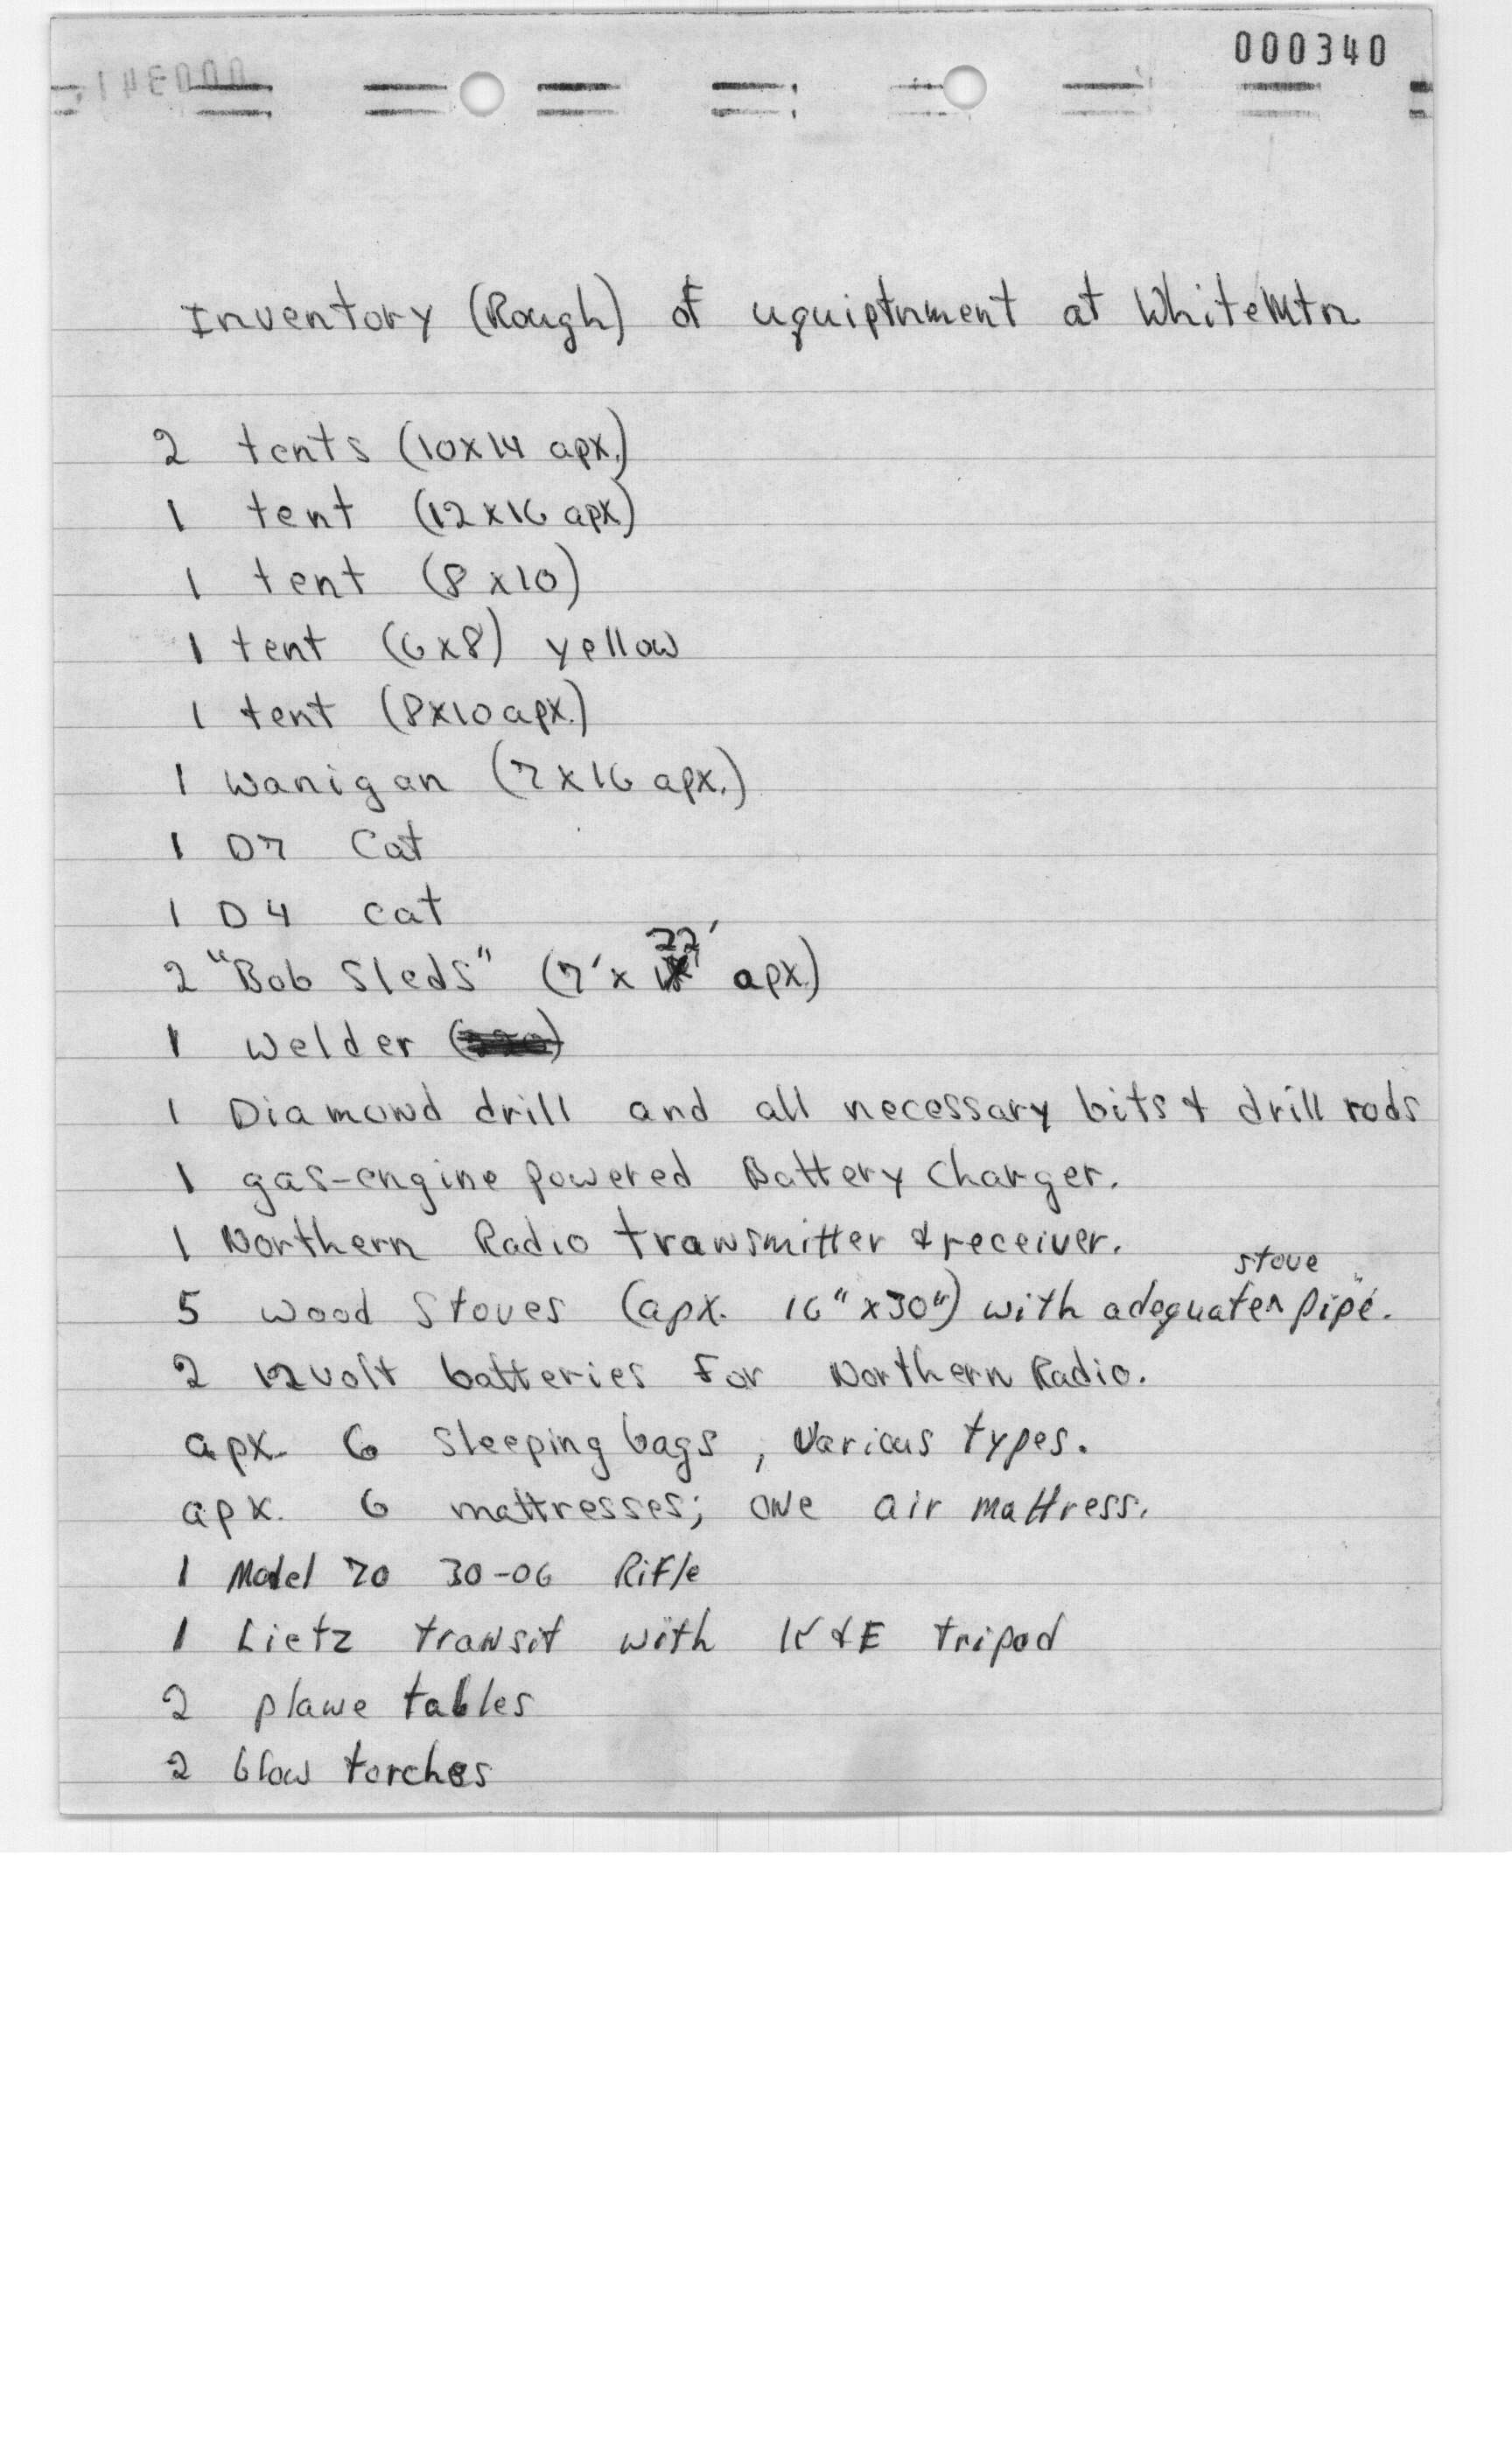 000340
Inventory (Rough) of uquiptnment at WhiteMtn
2 tents (10x14 apx.)
1 tent (12x16 apx)
1 tent (8x10)
1 tent (6x8) yellow
1 tent (8x10 apx.)
1 Wanigan (7x16 apx.)
1 D7 Cat
1 D4 cat
2 "Bob Sleds" (7'x 22' apx.)
1 welder
1 Diamond drill and all necessary bits & drill rods
1 gas-engine powered Battery Charger.
1 Northern Radio transmitter & receiver.
5 wood Stoves (apx. 16" x 30") with adequate stove pipe.
2 12volt batteries for Northern Radio.
apx. 6 Sleeping bags, various types.
apx. 6 mattresses; one air mattress.
1 Model 70 30-06 Rifle
1 Lietz transit with K&E tripod
2 plane tables
2 blow torches